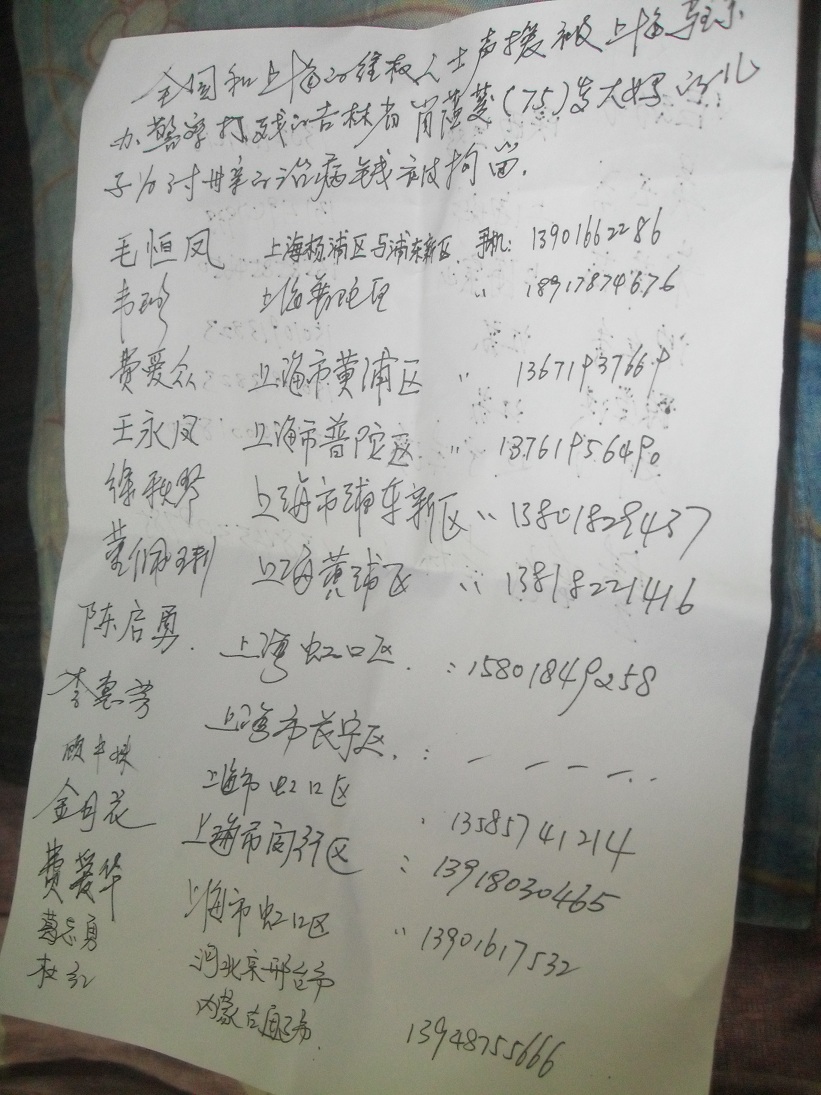 全国和上海的维权人士声援被上海驻京
办警察打残的吉林省肖蕴菱(75)岁大妈的儿
子为讨母亲的治病钱被拘留.
毛恒凤 上海杨浦区与浦东新区 手机: 13901662286
韦玲 上海普陀区 〃 18917874676
费爱众 上海市黄浦区 〃 13671937669
王永凤 上海市普陀区 〃 13761956490
徐秋玲 上海市浦东新区 〃 13801829437
董佩 上海黄浦区 〃 13818221416
陈启勇. 上海虹口区. : 15801849258
李惠芳 上海市长宁区. : — — — ..
顾 妹 上海市虹口区 : 13585741214
金月花 上海市闵行区 : 13918030465
费爱华 上海市虹口区 〃 13901617532
葛志勇 河北 邢台市
杜 内蒙古 市 13948755666